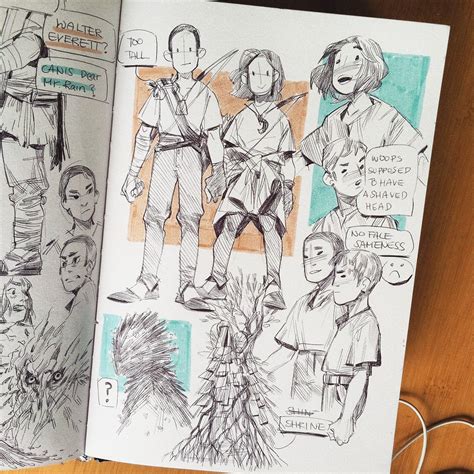 WALTER
EVERETT?
CANIS Dear
Mr Rain?
TOO
TALL
WOOPS
SUPPOSED
TO HAVE
A SHAVED
HEAD
NO FACE
SAMENESS
?
SHRINE